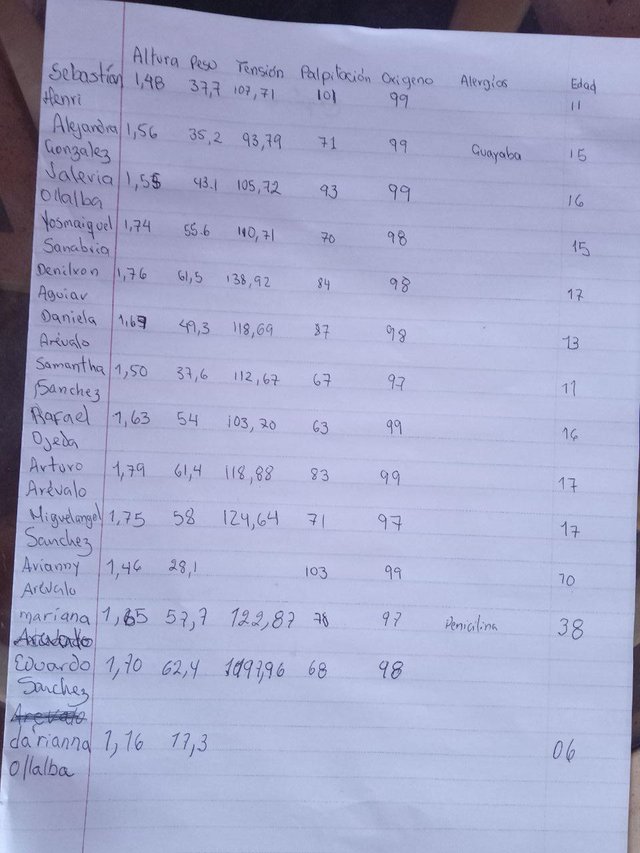 Altura Peso Tensión Palpitación Oxigeno Alergias Edad
Sebastián 1,48 37,7 107,71 101 99 11
Henri
Alejandra 1,56 35,2 93,79 71 99 Guayaba 15
Gonzalez
Valeria 1,55 43.1 105,72 93 99 16
Ollalba
Yosmaiquel 1,74 55.6 110,71 70 98 15
Sanabria
Denilson 1,76 61,5 138,92 84 98 17
Aguiar
Daniela 1,67 49,3 118,69 87 98 13
Arévalo
Samantha 1,50 37,6 112,67 67 97 11
Sanchez
Rafael 1,63 54 103,70 63 99 16
Ojeda
Arturo 1,79 61,4 118,88 83 99 17
Arévalo
Miguelangel 1,75 58 124,64 71 97 17
Sanchez
Avianny 1,46 28,1 103 99 10
Arévalo
mariana 1,65 57,7 122,87 78 97 Penicilina 38
Eduardo 1,70 62,4 68 98
Sanchez
Arevalo
da'rianna 1,16 17,3 06
Ollalba